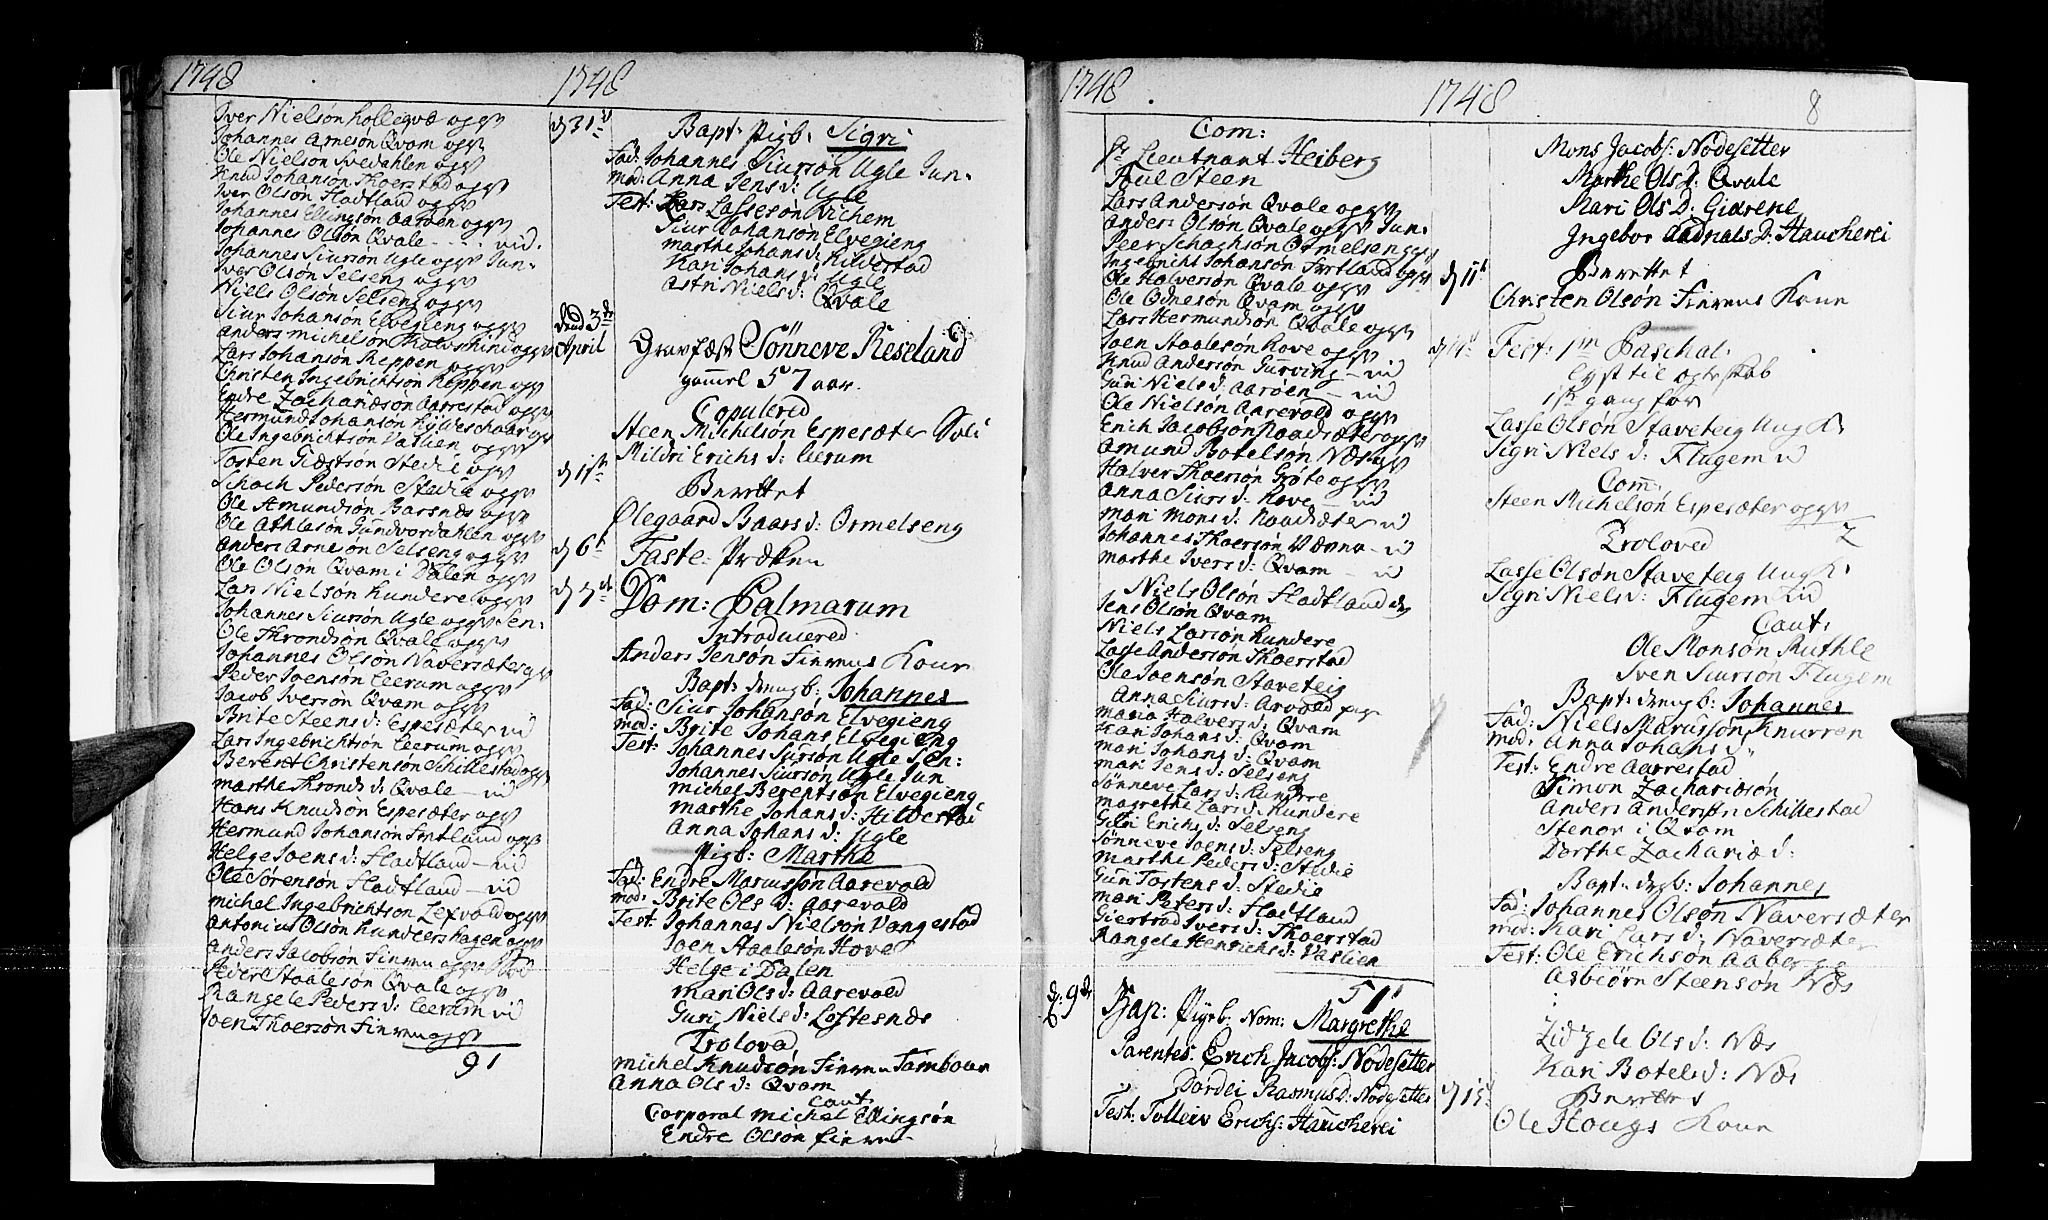 1748
Iver Nielsøn Hollegvæ og qv
Johannes Arnesøn Qvam og qv
Ole Nielsøn Svedahlen og qv
Knud Johansøn Thoerstad og qv
Iver Olsøn Fladtland og qv
Johannes Ellingsøn Aarøen og qv
Johannes Olsøn Qvale - - - vid.
Johannes Siursøn Ugle og qv Jun-
Iver Olsøn Selseng og qv
Niels Olsøn Selseng og qv
Siur Johansøn Elvegieng og qv
Anders Michelsøn og qv
Lars Johansøn Reppen og qv
Christen Ingebrichtsøn Reppen og qv
Endre Zachariæsøn Aarrestad og qv
Hermund Johansøn og
Ole Ingebrichtsøn Vaslien og qv
Tosten Giæstsøn Stedie og qv
Schach Pedersøn Stedie og qv
Ole Amundsøn Barsnæs og qv
Ole Athlesøn Gundvordahlen og qv
Anders Arnesøn Selseng og qv
Ole Olsøn Qvam i Dalen og qv
Lars Nielsøn Hundere og qv
Johannes Siursøn Ugle og qv Sen-
Ole Throndsøn Qvale og qv
Johannes Olsøn Naversæter og qv
Peder Joensøn Eerum og qv
Jacob Iversøn Qvam og qv
Brite Steens d: Espesæter vid
Lars Ingebrichtsøn Eerum og qv
Berent Christensøn Schikestad og qv
Marthe Thronds d: Qvale - vid
Hans Knudsøn Espesæter og qv
Hermund Johansøn Frtland og qv
Helge Joens d: Fladtland - vid
Ole Sørensøn Fladtland - vid
Michel Ingebrichtsøn Lefvold og qv
Antonius Olsøn Hundershagen og qv
Anders Jacobsøn Finmu og qv
Peder Staalesøn Qvale og qv
Rangele Peders d: Eerum vid
Joen Thoersøn Finmu og qv
91
1748
d 31te
Bapt: Pigb: Sigri
Fad: Johannes Siursøn Ugle Jun.
Mod: Anna Jens d: Ugle
Test: Lars Lassesøn Vichem
Siur Johansøn Elvegieng
Marthe Johans d: Hildestad
Kari Johans d: Ugle
Astri Niels d: Qvale
dend 3de
April
Gravfæst Sønneve Reseland
gammel 57 aar.
Copulered
Steen Michelsøn Espesæter Soli
Mildri Erichs d: Eerum
Berettet
Olegaard Baars d: Ormelseng
d 6t
Faste: Præken
Dom: Palmarum
Introducered
Anders Jensøn Finmus Kone
Bapt: drengb: Johannes
Fad: Siur Johansøn Elvegieng
Mod: Brite Johans Elvegieng
Test: Johannes Siursøn Ugle Sen:
Johannes Siursøn Ugle Jun
Michel Berentsøn Elvegieng
Marthe Johans d: Hildestad
Anna Johans d: Ugle
Pigb: Marthe
Fad: Endre Marcussøn Aarevold
Mod: Brite Ols d: Aarevold
Test: Johannes Nielsøn Vangestad
Joen Staalesøn Hove
Helge i Dalen
Mari Ols d: Aarevold
Guri Niels d: Loftesnæs
Trolovad
Michel Knudsøn Finmu Tambour
Anna Ols d: Qvam
Caut:
Corporal Michel Ellingsøn
Endre Olsøn Finmu
1748
Com:
Hr Lieutnant Heiberg
Poul Steen
Lars Andersøn Qvale og qv
Anders Olsøn Qvale og qv Jun.
Peer Schachsøn Ormelseng og qv
Ingebricht Johansøn Frtland og qv
Ole Halversøn Qvale og qv
Ole Odnesøn Qvam og qv
Lars Hermundsøn Qvale og qv
Joen Staalesøn Hove og qv
Knud Andersøn Gurving - vid
Guri Niels d: Aarøen - vid
Ole Nielsøn Aarevold og qv
Erich Jacobsøn Naadsæter og qv
Amund Botelsøn Næs og qv
Halver Thoersøn Grøte og qv
Anna Siurs d: Hove - vid
Mari Mons d: Naadsæter vid
Johannes Thoersøn Vænna - vid
Marthe Ivers d: Qvam - vid
Niels Olsøn Fladtland
Jens Olsøn Qvam
Niels Larsøn Hundere
Lasse Andersøn Thoerstad
Ole Joensøn Staveteig
Anna Siurs d: Arvold pig
Maria Halvers d: Qvam
Kari Johans d: Qvam
Mari Johans d: Qvam
Mari Jens d: Selseng
Sønneve Lars d: Hundere
Magrethe Lars d: Hundere
Guri Erichs d: Selseng
Sønneve Joens d: Selseng
Marthe Peders d: Stedie
Guri Tostens d: Stedie
Mari Peters d: Fladtland
Giertrud Ivers d: Thoerstad
Rangele Henrichs d: Vaslien
51
d: 9de
Bap: Pigeb: Nom: Margrethe
Parentes: Erich Jacobs: Nodesetter
Dordei Rasmus d: Nodesetter
Test: Tolleiv Erichs: Haucherei
1748
8
Mons Jacobs: Nodesetter
Marthe Ols d: Qvale
Mari Ols D: Gidrene
Ingebor d: Haucherei
d 11t
Berettet
Christen Olsøn Finmus Kone
d 14t
Fest: 1m Paschal.
Lyst til egteskab
1ste gang for
Lasse Olsøn Staveteig Ung K.
Sigri Niels d: Flugem vid
Com:
Steen Michelsøn Espesæter og qv
2
Trolovad
Lasse Olsøn Staveteig Ung K.
Sigri Niels d: Flugem vid
Caut:
Ole Monsøn Ruthle
Sven Siursøn Flugem
Bapt: drengb: Johannes
Fad: Niels Marcussøn Knurren
Mod: Anna Johans d:
Test: Endre Aarrestad
Simon Zachariæsøn
Anders Andersøn Schikestad
Stenor i Qvam
Dorthe Zachariæ d:
Bapt: dregb: Johannes
Fad: Johannes Olsøn Naversæter
Mod: Kari Lars d: Naversæter
Test: Ole Erichsøn Aaberge
Asbiörn Steensøn Næs
Zidzele Ols d: Næs
Kari Botels d: Næs
d 15t
Berettet
Ole Hougs Kone